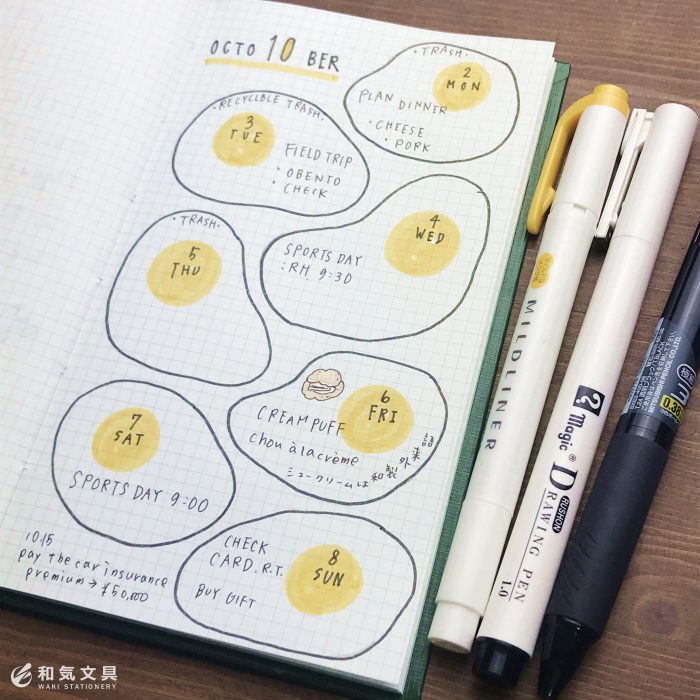 OCTO 10 BER
・TRASH・
2
MON
PLAN DINNER
・CHEESE
・PORK
・RECYCLBLE TRASH・
3
TUE
FIELD TRIP
・OBENTO
CHECK
4
WED
SPORTS DAY
RH 9:30
・TRASH・
5
THU
6
FRI
CREAMPUFF
chou à lacrème
シュークリームは
和製
外来
7
SAT
SPORTS DAY 9:00
8
SUN
CHECK
CARD. R.T.
BUY GIFT
10.15
pay the car insurance
premium → ¥50,000
MILDLINER
magic®
DRAWING PEN
RUSHON
1.0
0.38
和気文具
WAKI STATIONERY